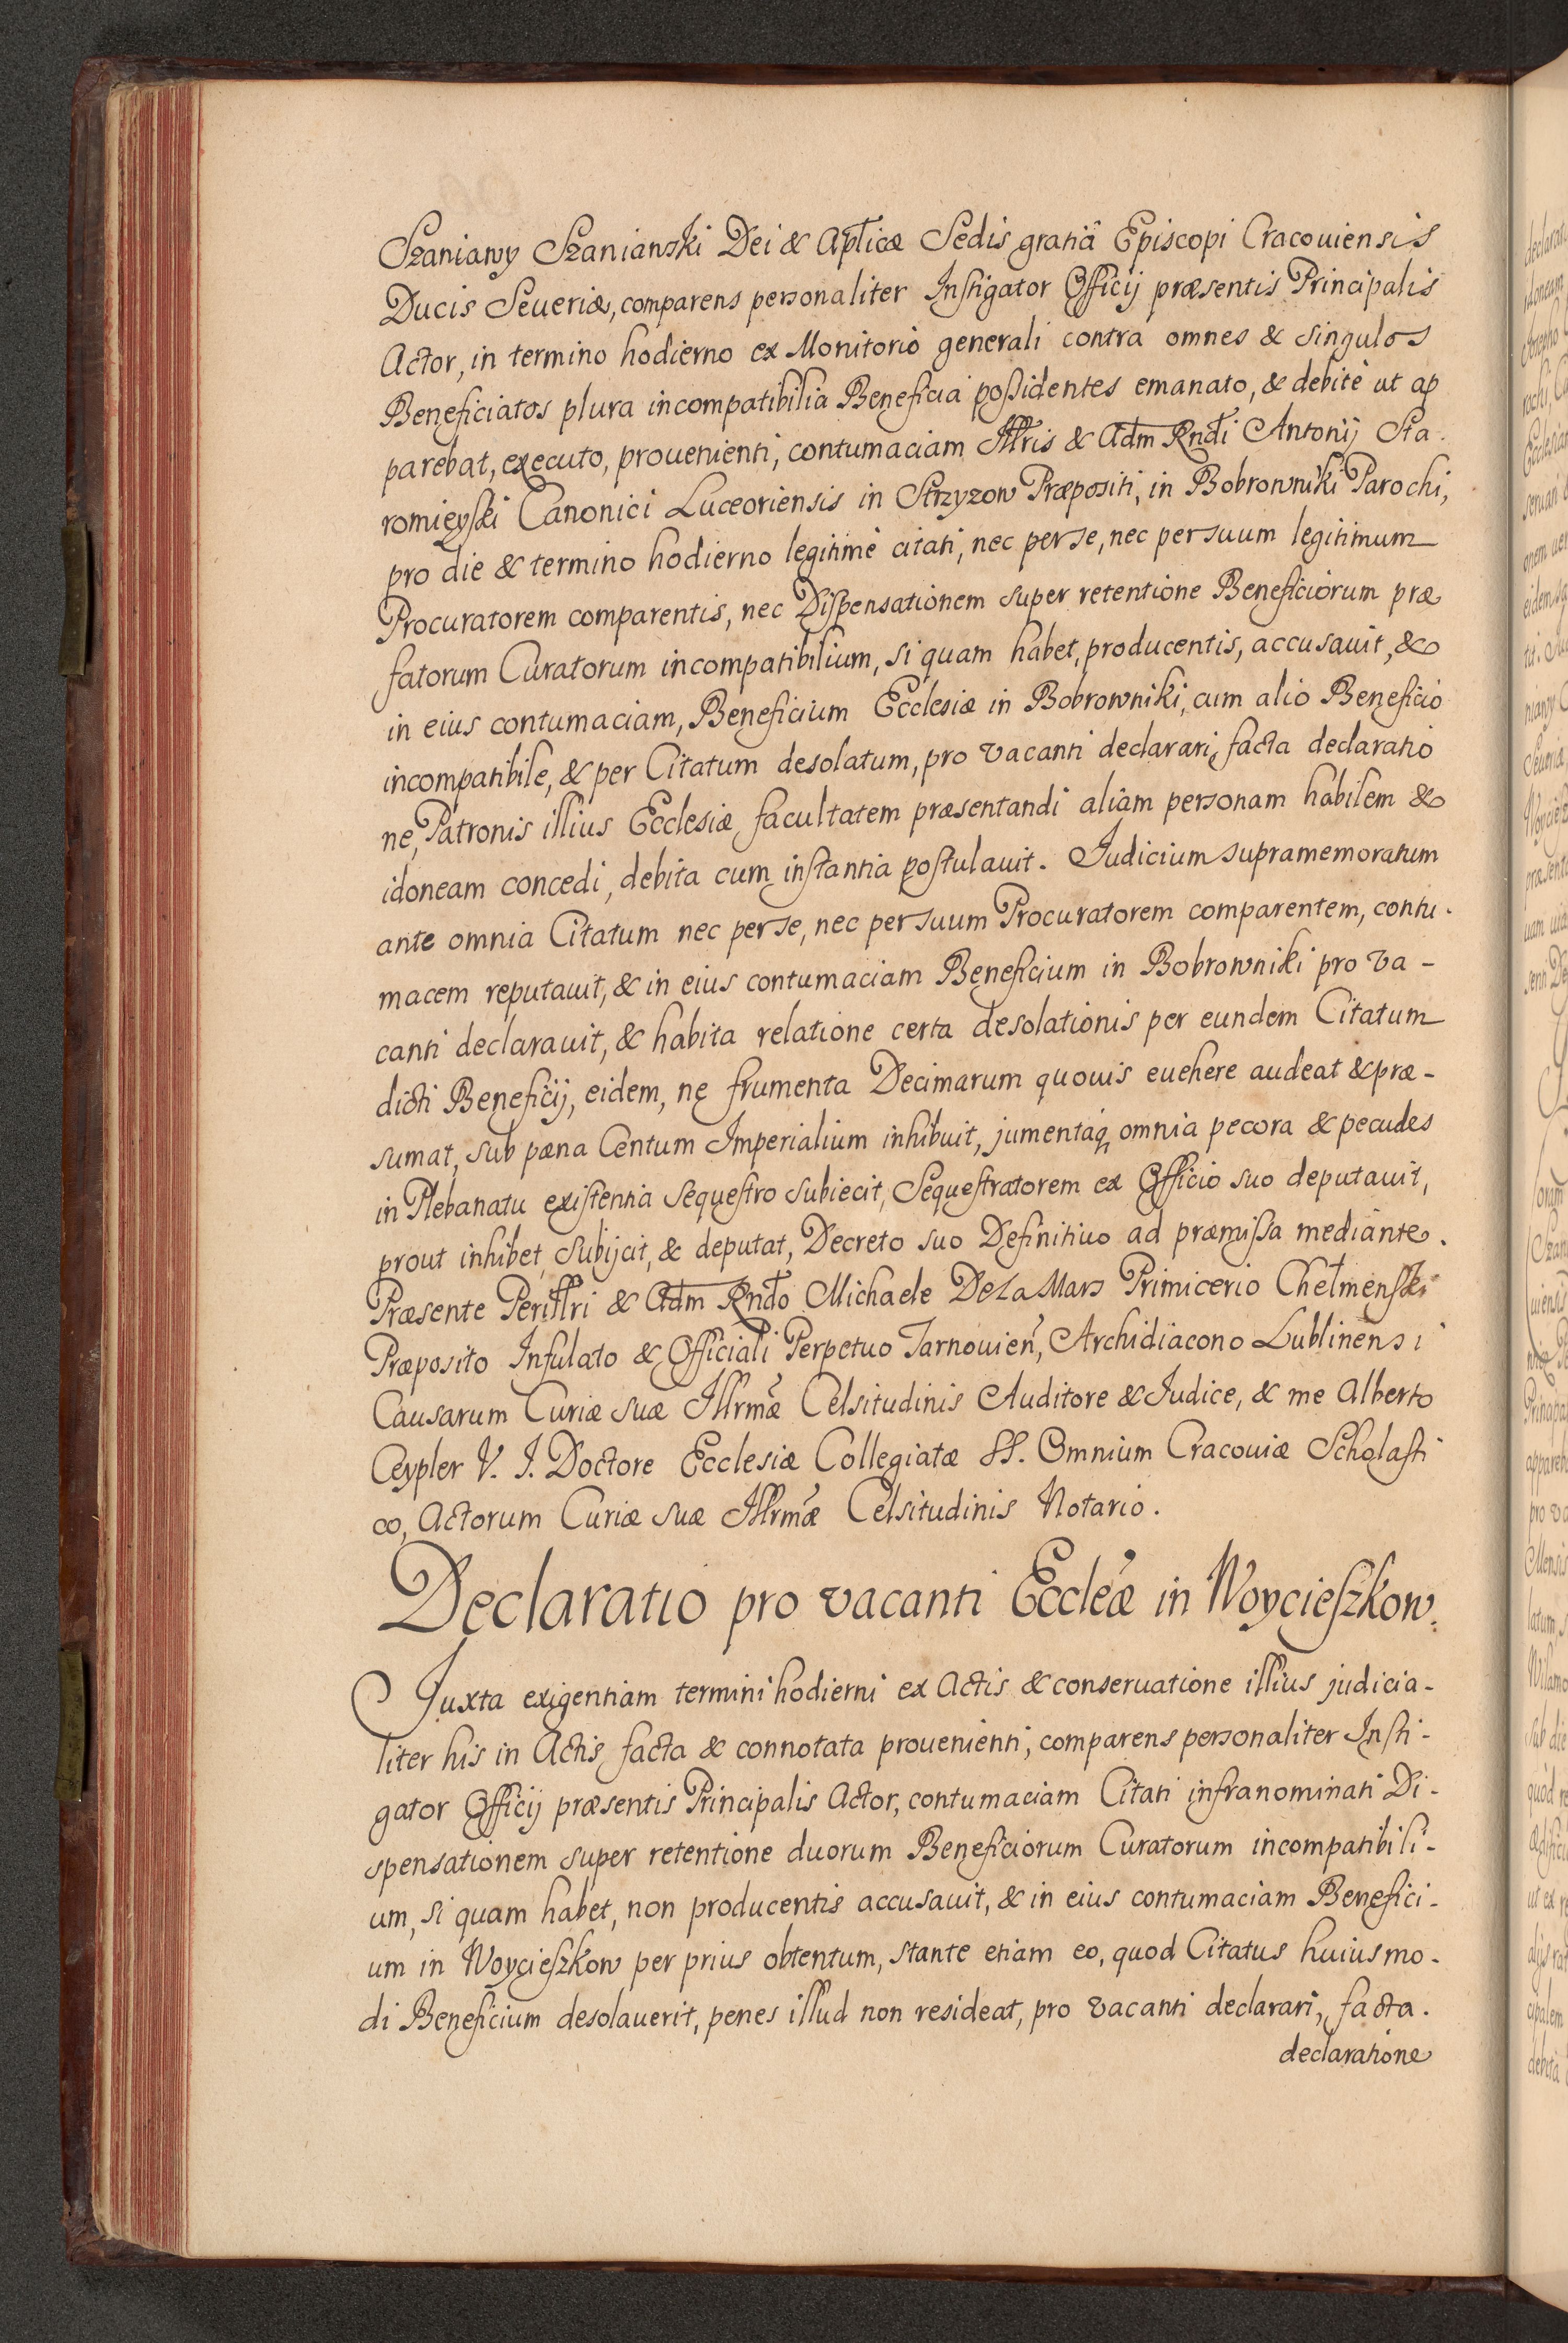 Szaniawy Szanianski Dei & Aplicæ Sedis gratiâ Episcopi Cracouiensis
Ducis Seueriæ, comparens personaliter Instigator Officij præsentis Principalis
Actor, in termino hodierno ex Monitorio generali contra omnes & singulos
Beneficiatos plura incompatibilia Beneficia possidentes emanato, & debitè ut ap
parebat, executo, prouenienti, contumaciam Illris & Adm Rndi Antonij Sta.
romieyski Canonici Luceoriensis in Strzyzow Præpositi, in Bobrowniki Parochi,
pro die & termino hodierno legitimè citati, nec per se, nec per suum legitimum
Procuratorem comparentis, nec Dispensationem super retentione Beneficiorum præ
fatorum Curatorum incompatibilium, si quam habet, producentis, accusauit, &
in eius contumaciam, Beneficium Ecclesiæ in Bobrowniki, cum alio Beneficio
incompatibile, & per Citatum desolatum, pro vacanti declarari, facta declaratio
ne, Patronis illius Ecclesiæ facultatem præsentandi aliam personam habilem &
idoneam concedi, debita cum instantia postulauit. Judicium supramemoratum
ante omnia Citatum nec per se, nec per suum Procuratorem comparentem, contu.
macem reputauit, & in eius contumaciam Beneficium in Bobrowniki pro va -
canti declarauit, & habita relatione certa desolationis per eundem Citatum
dicti Beneficij, eidem, ne frumenta Decimarum quouis euehere audeat & præ -
sumat, sub pæna Centum Imperialium inhibuit, jumentaq omnia pecora & pecudes
in Plebanatu existentia sequestro subiecit, Sequestratorem ex Officio suo deputauit,
prout inhibet, subijcit, & deputat, Decreto suo Definitiuo ad præmissa mediante.
Præsente Perillri & Adm Rndo Michaele De La Mars Primicerio Chelmenski
Præposito Infulato & Officiali Perpetuo Tarnouien, Archidiacono Lublinensi
Causarum Curiæ suæ Illrmæ Celsitudinis Auditore & Judice, & me Alberto
Ceypler V. J. Doctore Ecclesiæ Collegiatæ SS. Omnium Cracouiæ Scholasti
co, Actorum Curiæ suæ Illrmæ Celsitudinis Notario.
Declaratio pro vacanti Eccleæ in Woycieszkow.
Juxta exigentiam termini hodierni ex Actis & conseruatione illius judicia -
liter his in Actis facta & connotata prouenienti, comparens personaliter Insti -
gator Officij præsentis Principalis Actor, contumaciam Citati infranominati Di -
spensationem super retentione duorum Beneficiorum Curatorum incompatibili -
um, si quam habet, non producentis accusauit, & in eius contumaciam Benefici -
um in Woycieszkow per prius obtentum, stante etiam eo, quod Citatus huiusmo -
di Beneficium desolauerit, penes illud non resideat, pro vacanti declarari, facta.
declaratione